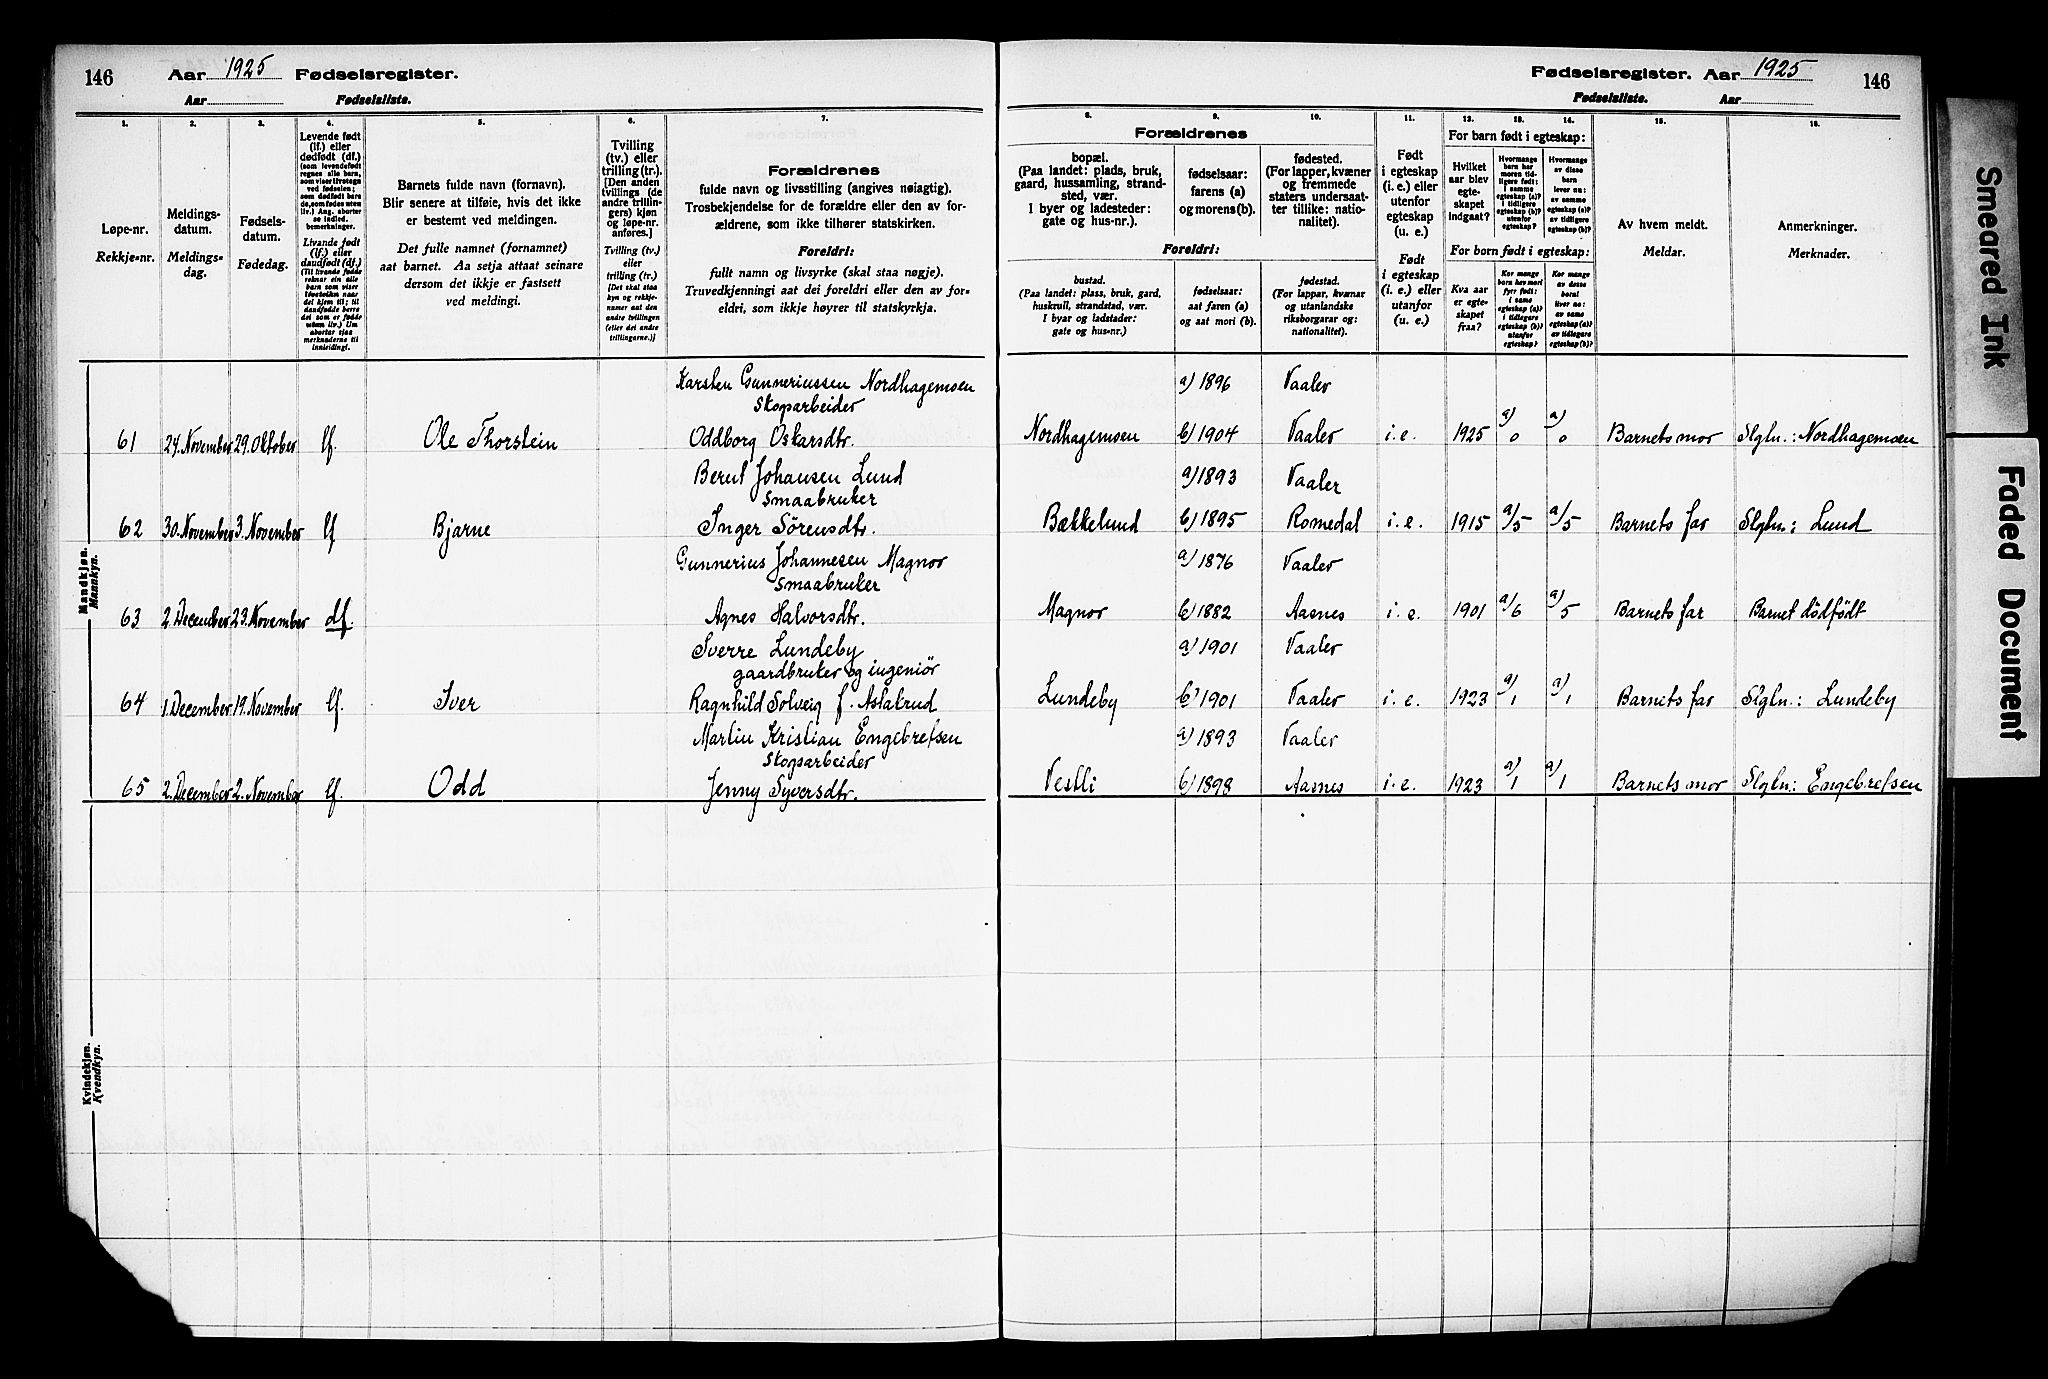 146 Aar 1925 Fødselsregister.
Aar Fødselsliste.
Fødselsregister. Aar 1925 146
Fødselsliste. Aar
1. 2. 3. 4. 5. 6. 7.
Løpe-nr.
Rekkje-nr.
Meldings-
datum.
Meldings-
dag.
Fødsels-
datum.
Fødedag.
Levende født
(lf.) eller
dødfødt (df.)
Livande født
(lf.) eller
daudfødt (df.)
Barnets fulde navn (fornavn).
Blir senere at tilføie, hvis det ikke
er bestemt ved meldingen.
Det fulle namnet (fornamnet)
aat barnet. Aa setja attaat seinare
dersom det ikkje er fastsett
ved meldingi.
Tvilling
(tv.) eller
trilling (tr.).
[Den anden
tvillings (de
andre trillin-
gers) kjøn
og løpe-nr.
anføres.]
Tvilling (tv.)
eller
trilling (tr.)
[Det skal staa
kyn og rekkje-
numer aat den
andre tvillingen
(eller dei andre
trillingarne.)]
Forældrenes
fulde navn og livsstilling (angives nøiagtig).
Trosbekjendelse for de forældre eller den av for-
ældrene, som ikke tilhører statskirken.
Foreldri:
fullt namn og livsyrke (skal staa nøgje).
Truvedkjenningi aat dei foreldri eller den av for-
eldri, som ikkje høyrer til statskyrkja.
8. 9. 10. 11. 12. 13. 14. 15. 16.
Forældrenes
bopæl.
(Paa landet: plads, bruk,
gaard, hussamling, strand-
sted, vær.
I byer og ladesteder:
gate og hus-nr.).
fødselsaar:
farens (a)
og morens (b).
fødested.
(For lapper, kvæner
og fremmede
staters undersaat-
ter tillike: natio-
nalitet).
Foreldri:
bustad.
(Paa landet: plass, bruk, gard,
huskrull, strandstad, vær.
I byar og ladstader:
gate og hus-nr.)
fødselsaar:
aat faren (a)
og aat mori (b).
fødestad.
(For lappar, kvænar
og utanlandske
riksborgarar og:
nationalitet).
Født
i egteskap
(i. e.) eller
utenfor
egteskap
(u. e.)
Født
i egteskap
(i. e.) eller
utanfor
(u. e.)
For barn født i egteskap:
Hvilket
aar blev
egte-
skapet
indgaat?
For born født i egteskap:
Kva aar
er egte-
skapet
fraa?
Av hvem meldt.
Meldar.
Anmerkninger.
Merknader.
Mandkjøn.
Mannkyn.
Karsten Gunneriussen Nordhagemoen a) 1896 Vaaler
Skogarbeider
61 24. November 29. Oktober lf. Ole Thorstein Oddborg Oskarsdtr. Nordhagemoen b) 1904 Vaaler i. e. 1925 a) 0 a) 0 Barnets mor Slgtn.: Nordhagemoen
Bernt Johansen Lund a) 1893 Vaaler
Smaabruker
62 30. November 3. November lf Bjarne Inger Sørensdtr. Bækkelund b) 1895 Romedal i. e. 1915 a/5 a/5 Barnets far Slgtn.: Lund
Gunnerius Johannesen Magnor a) 1876 Vaaler
Smaabruker
63 2. December 23. November df. Agnes Halvorsdtr. Magnor b) 1882 Aasnes i. e. 1901 a/6 a/5 Barnets far Barnet dödfödt
Sverre Lundeby a) 1901 Vaaler
gaardbruker og ingeniör
64 1. December 19. November lf. Iver Ragnhild Solveig f. Aslakrud Lundeby b) 1901 Vaaler i. e. 1923 a) 1 a) 1 Barnets far Slgtn.: Lundeby
Martin Kristian Engebretsen a) 1893 Vaaler
Skogsarbeider
65 2. December 2. November lf. Odd Jenny Syversdtr. Vestli b) 1898 Aasnes i. e. 1923 a) 1 a) 1 Barnets mor Slgtn.: Engebretsen
Kvindekjøn.
Kvendkyn.
Smeared Ink
Faded Document